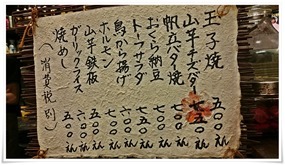 玉子焼 五〇〇えん
山芋チーズダー 七五〇えん
帆立バター焼 七〇〇えん
おくら納豆 五〇〇えん
トーフサラダ 六〇〇えん
鳥から揚げ 七〇〇えん
ホルモン 六〇〇えん
山芋鉄板 七〇〇えん
ガーリックライス 五〇〇えん
焼めし 五〇〇えん
(消費税別)